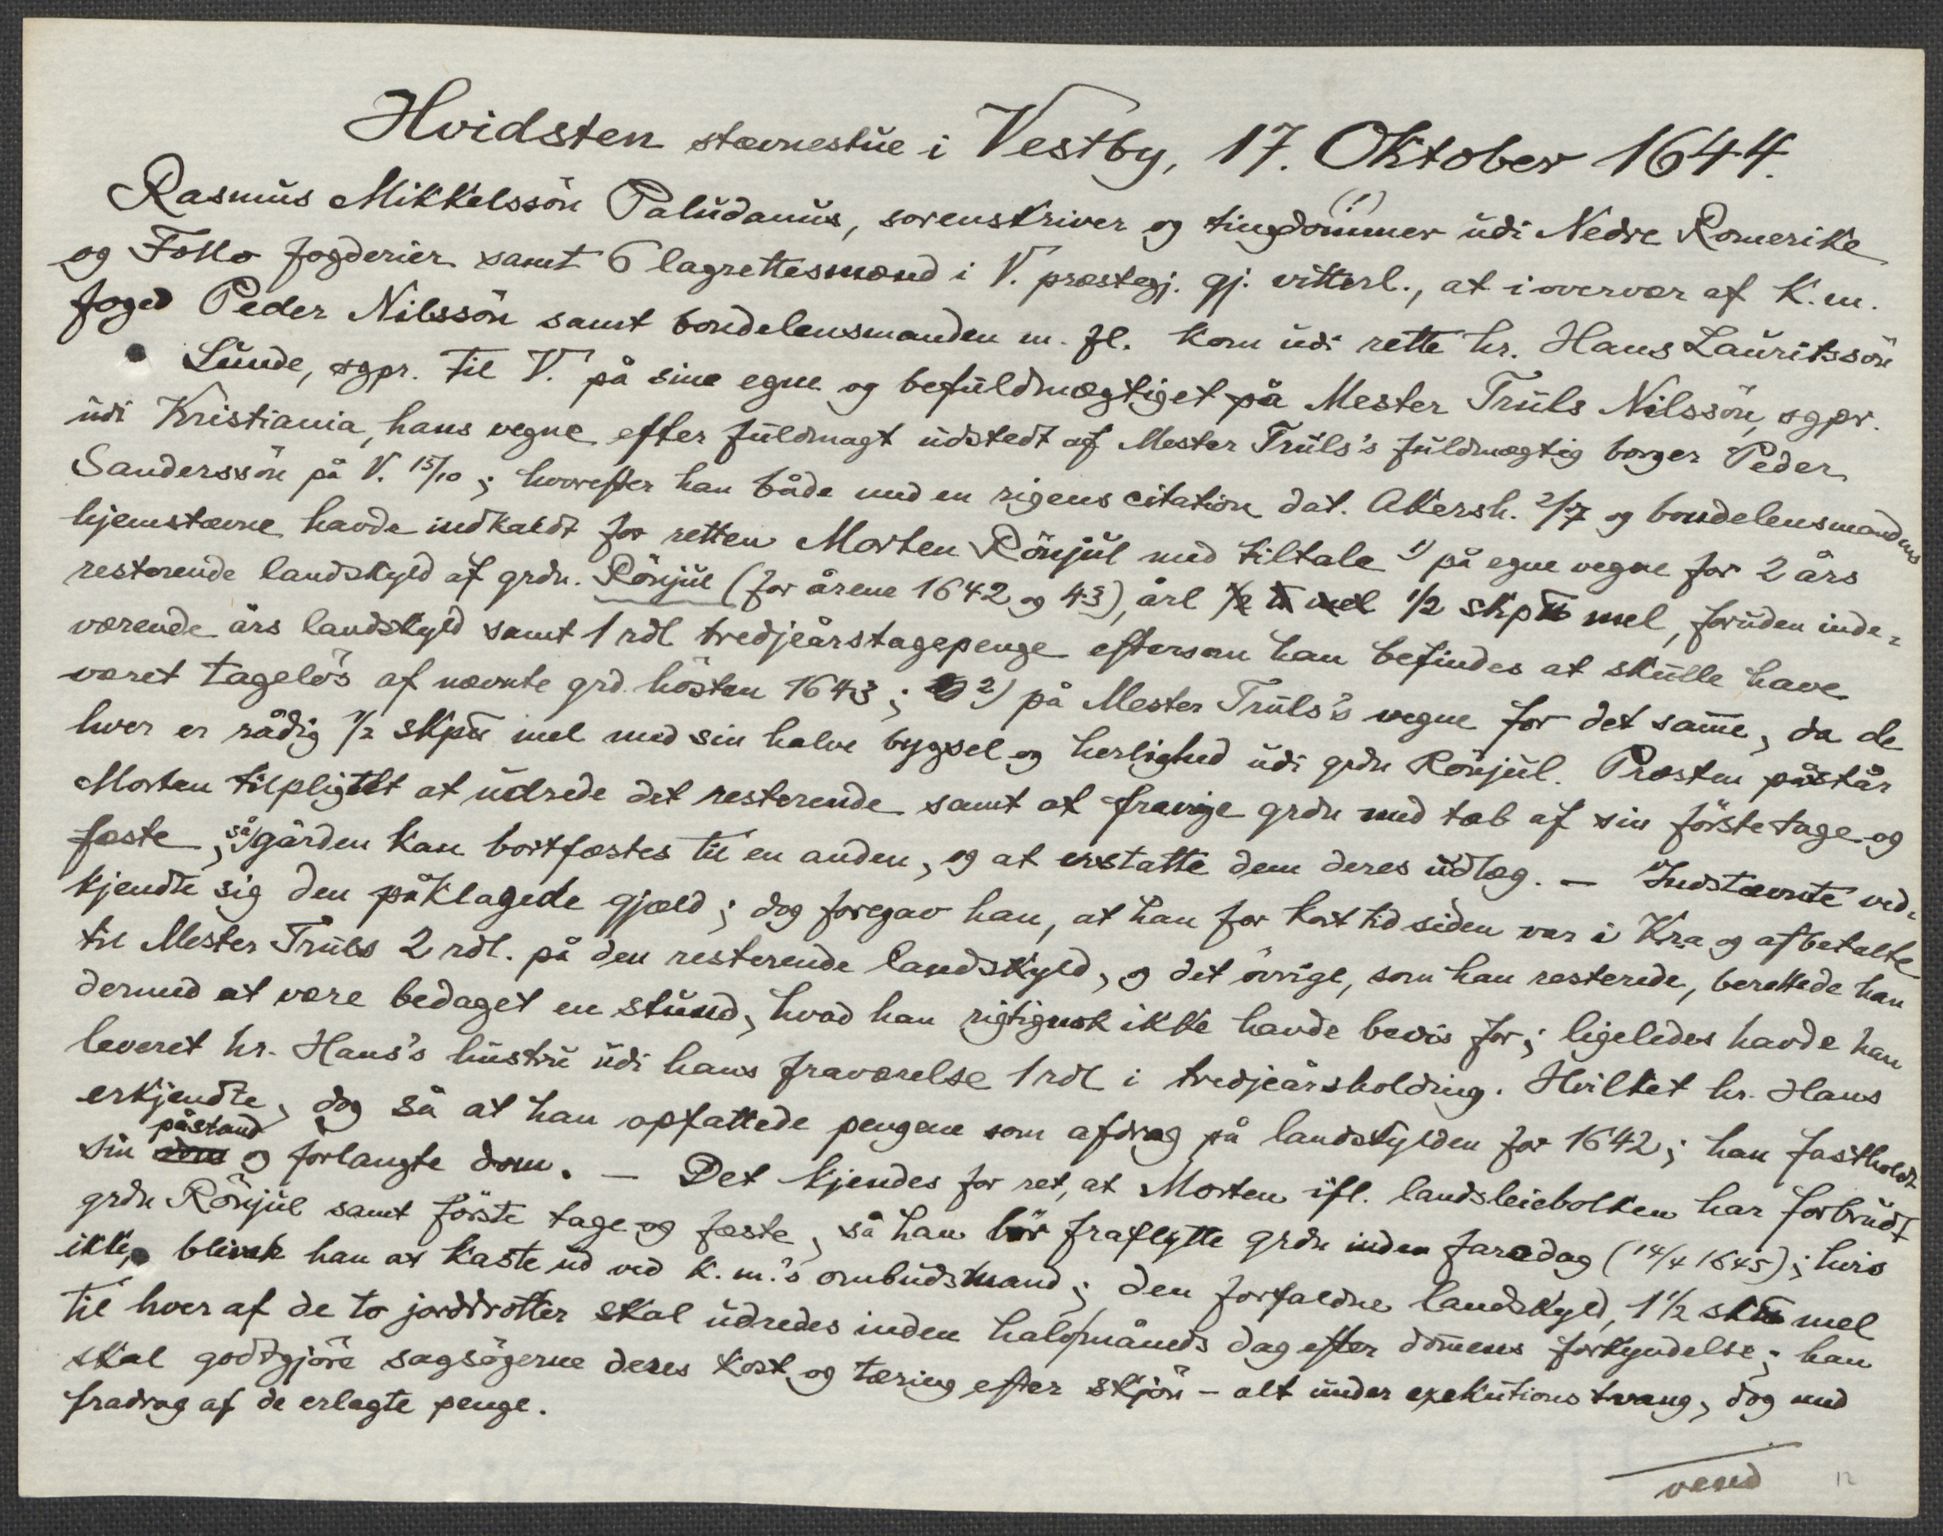 Hvidsten stævnestue i Vestby, 17. Oktober 1644.
Rasmus Mikkelssön Paludanus, sorenskriver og tingdommer (!) udi Nedre Romerike
og Follo fogderier samt 6 lagrettesmænd i V. præstegj. gj. vitterl., at i overvær af K. m.
foged Peder Nilssön samt bondelensmanden m. fl. kom udi rette hr. Hans Lauritssön
Lunde, sgpr. til V. på sine egne og befuldmægtiget på Mester Truls Nilssön, sgpr.
udi Kristiania, hans vegne efter fuldmagt udstedt af Mester Truls's fuldmægtig borger Peder
Sanderssön på V. 15/10; hvorefter han både med en rigens citation dat. Akersh. 2/7 og bondelensmandens
hjemstævne havde indkaldt for retten Morten Rönjul med tiltale 1) på egne vegne for 2 års
resterende landskyld af grdn. Rönjul (for årene 1642 og 43), årl ½ ℔ mel ½ skp℔ mel, foruden inde-
værende års landskyld samt 1 rdl tredjeårstagepenge eftersom han befindes at skulle have
været tagelös af nævnte grd hösten 1643; 2) på Mester Truls's vegne for det samme, da de
hver er rådig ½ skp℔ mel med sin halve bygsel og herlighed udi grdn Rönjul. Præsten påstår
Morten tilpligtet at udrede det resterende samt at fravige grdn med tab af sin förste tage og
fæste, så gården kan bortfæstes til en anden, og at erstatte dem deres udlæg. — Indstævnte ved-
kjendte sig den påklagede gjæld; dog foregav han, at han for kort tid siden var i Kr.a og afbetalte
til Mester Truls 2 rdl. på den resterende landskyld, og det övrige, som han resterede, berettede han
dermed at være bedaget en stund, hvad han rigtignok ikke havde bevis for; ligeledes havde han
leveret hr. Hans's hustru udi hans fraværelse 1 rdl i tredjeårsholding. Hvilket hr. Hans
erkjendte, dog så at han opfattede pengene som afdrag på landskylden for 1642; han fastholdt
sin dom påstand og forlangte dom. — Det kjendes for ret, at Morten ifl. landsleiebolken har forbrudt
grdn Rönjul samt förste tage og fæste, så han bör fraflytte grdn inden faredag (14/4 1645); hvis
ikke, bliver han at kaste ud ved K. m.'s ombudsmand; den forfaldne landskyld, 1½ sk℔ mel
til hver af de to jorddrotter skal udredes inden halvmåneds dag efter dommens forkyndelse; han
skal godtgjöre sagsögerne deres kost og tæring efter skjön – alt under exekutions tvang, dog med
fradrag af de erlagte penge.
vend
12